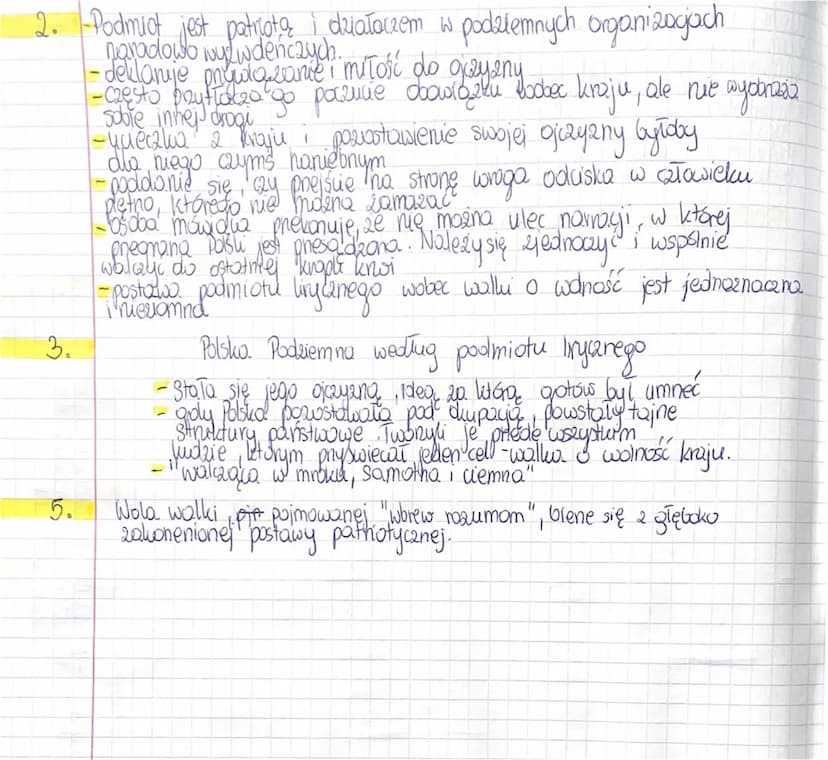 2. - Podmiot jest patriotą i działaczem w podziemnych organizacjach
narodowo wyzwoleńczych.
- deklaruje przywiązanie i miłość do ojczyzny
- często przytłacza go poczucie obowiązku wobec kraju, ale nie wyobraża
sobie innej drogi
- ucieczka z kraju i pozostawienie swojej ojczyzny byłoby
dla niego czymś haniebnym
- poddanie się, czy przejście na stronę wroga odciska w człowieku
piętno, którego nie można zamazać
- osoba mówiąca przekonuje, że nie można ulec narracji, w której
przegrana Polski jest przesądzona. Należy się zjednoczyć i wspólnie
walczyć do ostatniej kropli krwi
- postawa podmiotu lirycznego wobec walki o wolność jest jednoznaczna
i niezłomna
3. Polska Podziemna według podmiotu lirycznego
- Stała się jego ojczyzną, ideą za którą gotów był umrzeć
- gdy Polska pozostawała pod okupacją, powstały tajne
struktury państwowe. Tworzyli je przede wszystkim
ludzie, którym przyświecał jeden cel - walka o wolność kraju.
- "walcząca w mroku, samotna i ciemna"
5. Wola walki, pojmowanej "wbrew rozumom", bierze się z głęboko
zakorzenionej postawy patriotycznej.